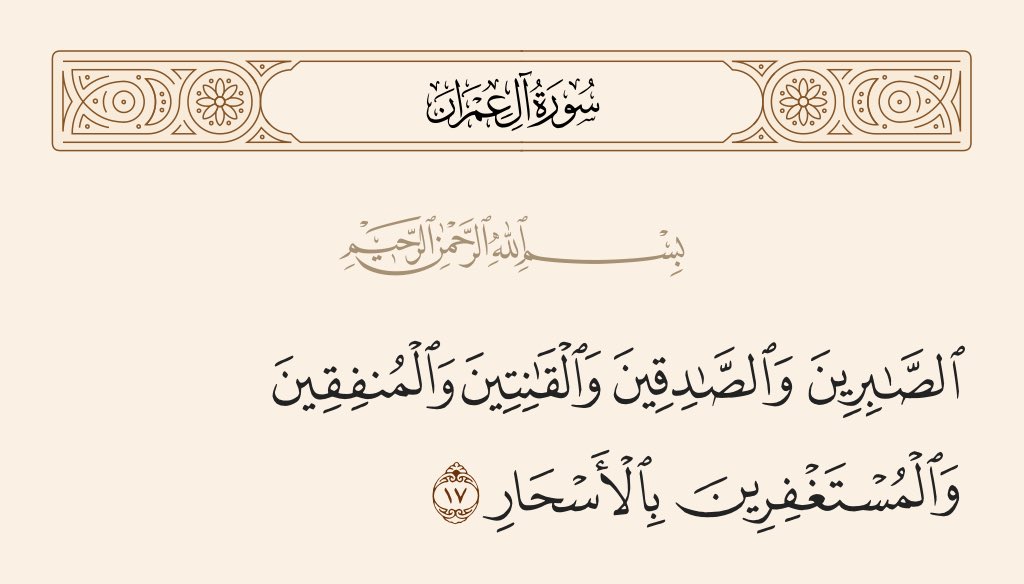 سُورَةُ آلِ عِمْرَان
بِسْمِ ٱللَّهِ ٱلرَّحْمَٰنِ ٱلرَّحِيمِ
ٱلصَّـٰبِرِينَ وَٱلصَّـٰدِقِينَ وَٱلْقَـٰنِتِينَ وَٱلْمُنفِقِينَ
وَٱلْمُسْتَغْفِرِينَ بِٱلْأَسْحَارِ ١٧